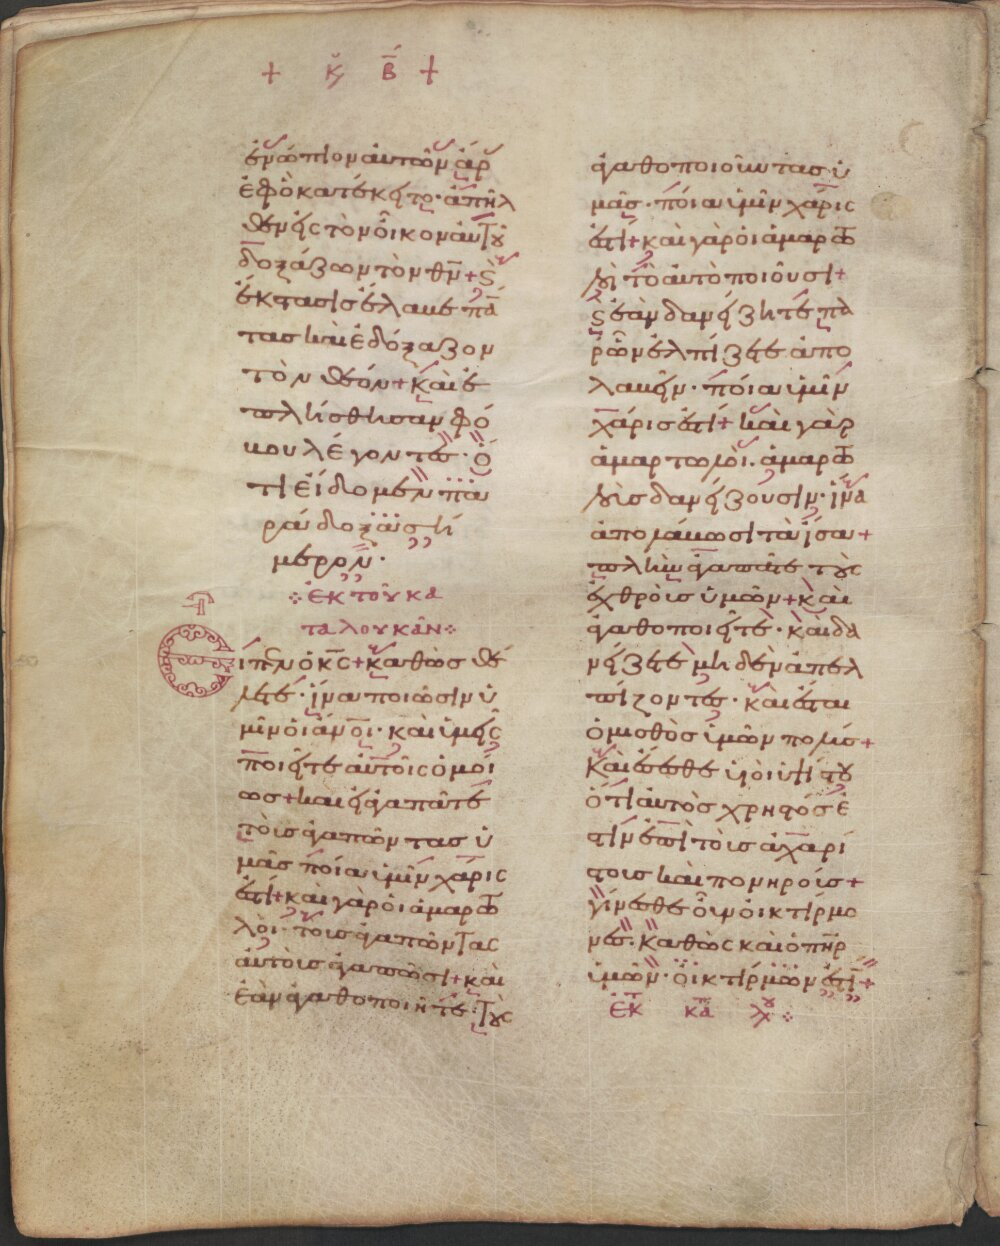 + κυ β +
ἐνώπιον αὐτῶν ἄρ
ἐφ ὃ κατέκειτο· ἀπηλ
θεν εἰς τὸν οἶκον αὐτοῦ
δοξάζων τὸν θν̄ + καὶ
ἔκστασις ἔλαβε πά
τας καὶ ἐδόξαζον
τὸν θεόν + καὶ ἐ
πλήσθησαν φό
βου λέγοντες· ὅ
τι εἴδομεν πα
ράδοξα σή
μερον·
ἐκ τοῦ κα
τα λουκᾶν
Εἶπεν ὁ κς̄ + καθὼς θέ
λετε· ἵνα ποιῶσιν ὑ
μῖν οἱ ἄνοι· καὶ ὑμεῖς
ποιεῖτε αὐτοῖς ὁμοί
ως + καὶ εἰ ἀγαπᾶτε
τοῖς ἀγαπῶντας ὑ
μᾶς ποία ὑμῖν χάρις
ἐστί + καὶ γὰρ οἱ ἁμαρτω
λοὶ· τοῖς ἀγαπῶντας
αὐτοῖς ἀγαπῶσι + καὶ
ἐὰν ἀγαθοποιῆτε· τοὺς
ἀγαθοποιοῦντας ὑ
μᾶς· ποία ὑμῖν χάρις
ἐστί + καὶ γὰρ οἱ ἁμαρτω
λοὶ τὸ αὐτὸ ποιοῦσι +
καὶ ἐὰν δανείζητε πα
ρ ὧν ἐλπίζετε ἀπο
λαβεῖν· ποία ὑμῖν
χάρις ἐστί + καὶ γὰρ
ἁμαρτωλοὶ· ἁμαρτω
λοῖς δανείζουσιν· ἵνα
ἀπολάβωσι τὰ ἴσα +
πλὴν ἀγαπᾶτε τοὺς
ἐχθροῖς ὑμῶν + καὶ
ἀγαθοποιεῖτε· καὶ δα
νείζετε μηδὲν ἀπελ
πίζοντες· καὶ ἔσται
ὁ μισθὸς ὑμῶν πολύς +
καὶ ἔσεσθε υἱοὶ ὑψίστου
ὅτι αὐτὸς χρηστός ἐ
στιν ἐπὶ τοῖς ἀχαρί
στοις καὶ πονηροῖς +
γίνεσθε οὖν οἰκτίρμο
νες· καθὼς καὶ ὁ πηρ
ὑμῶν· οἰκτίρμων ἐστὶ +
ἐκ τ κατ λου